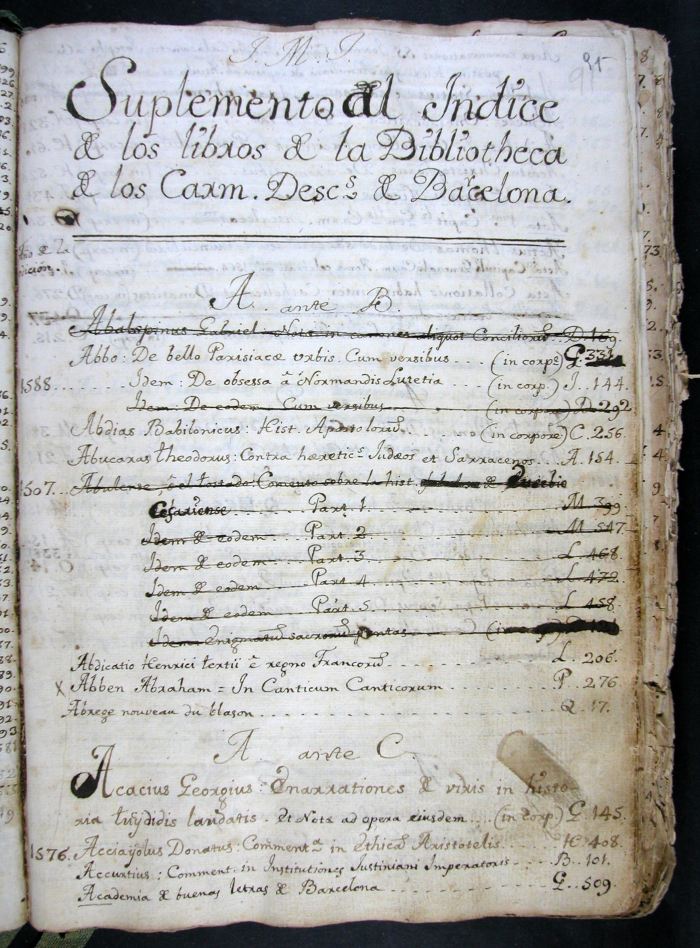 J. M. J.
91
Suplemento al Indice
de los libros de la Bibliotheca
de los Carm. Descs. de Barcelona.
Año de la
A. ante B.
Abalspinus Gabriel Nota in canones aliquot Conciliorũ. D 169.
Abbo: De bello Parisiacæ vrbis. Cum versibus ... (in corpe) G. 331
1588. Idem: De obsessa â Normandis Lutetia ... (in corp.) J. 144.
Idem: De eodem Cum versibus ... (in corpore) D 292
Abdias Babilonicus: Hist. Apostolorũ. ... (in corpore) C. 256.
Abucaras theodorus: Contra hæretics Judæos et Sarracenos. .. A. 154.
1507. Abulense, o el tostado: Comento sobre la hist. de Eusebio
Cesariense Part. 1. ... M 399
Idem de eodem Part. 2 ... M 547
Idem de eodem Part. 3 ... L 468
Idem de eodem Part. 4 ... L 472.
Idem de eodem Part. 5. ... L 458.
Idem Enigmatũ sacrorũ pentas.
Abdicatio Henrici tertii è regno Francorũ ... L. 206.
x Abben Abraham = In Canticum Canticorum ... P. 276
Abrege nouveau du blason ... Q. 17.
A. ante C.
Acacius Georgius: Enarrationes de viris in histo-
ria tuÿdidis laudatis. et Nota ad opera eiusdem .... (in corp.) G. 145.
1576. Acciayolus Donatus: Comment.a in ethicã Aristotelis. ... H. 408.
Accurtius: Comment. in Institutiones Iustiniani Imperatoris ... B. 101.
Academia de buenas letras de Barcelona ... G. 509.